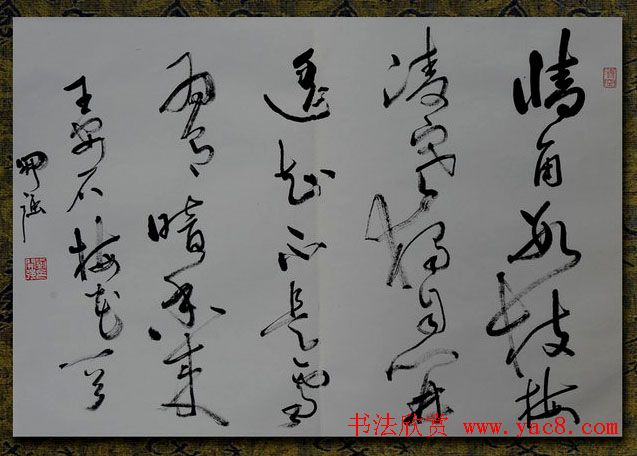 牆角數枝梅
凌寒獨自開
遙知不是雪
為有暗香來
王安石梅花一首
书法欣赏 www.yac8.com